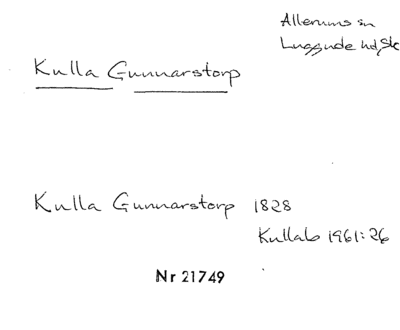 Allerums sn
Luggude hd, Sk
Kulla Gunnarstorp
Kulla Gunnarstorp 1828
Kullab 1961:26
Nr 21749